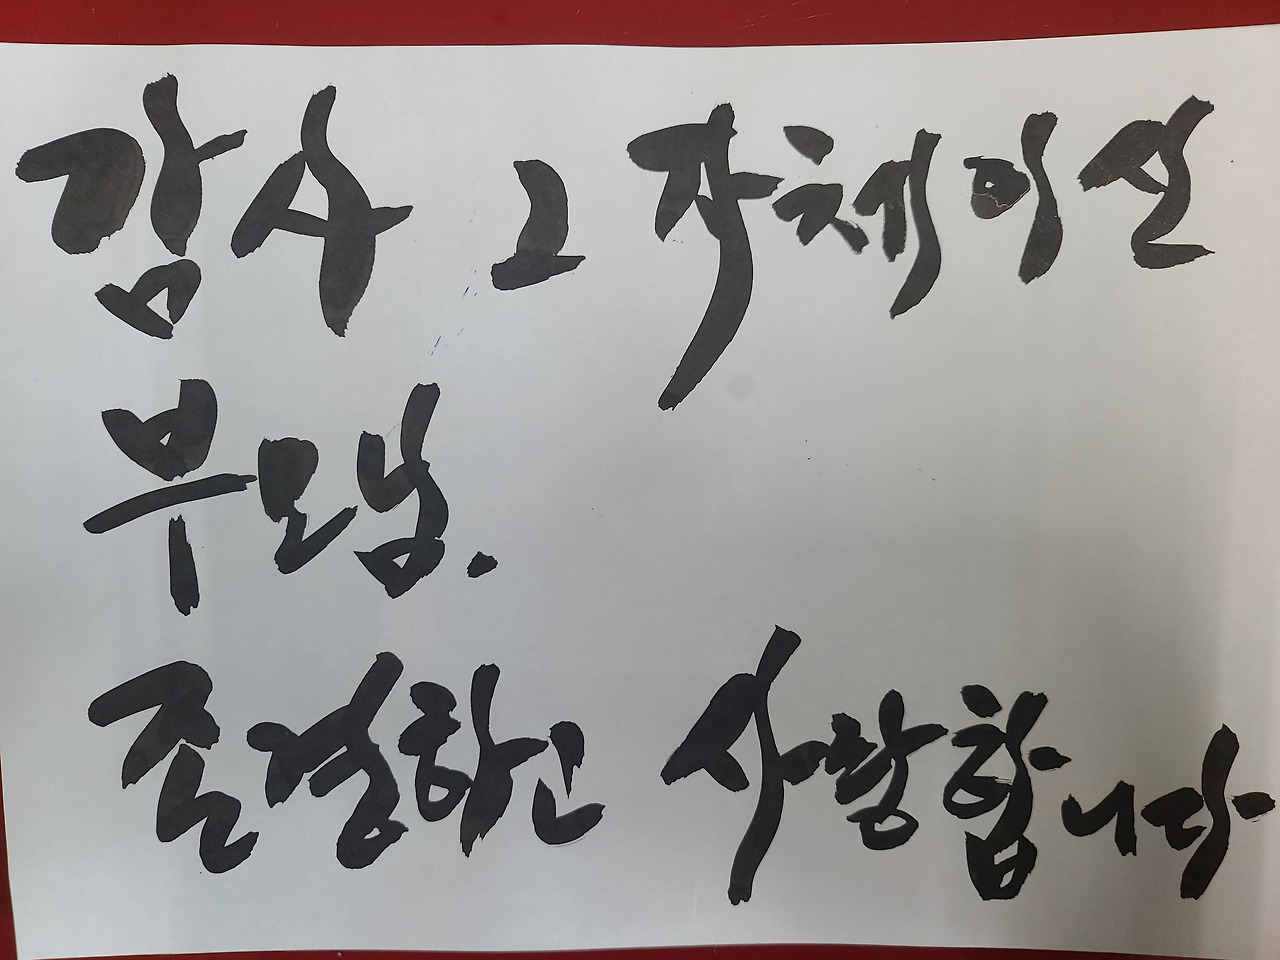 감사 그 자체이신
부모님.
존경하고 사랑합니다